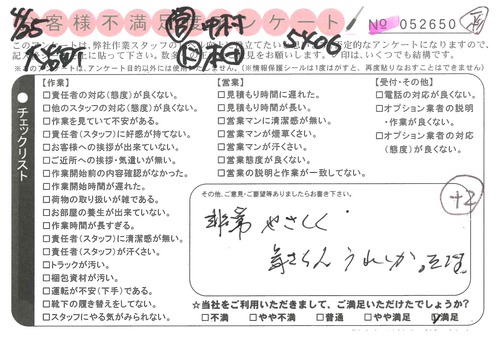 お客様不満足度アンケート
No 052650
4/25
中村
5406
このアンケートは、弊社作業スタッフの
※本アンケートは、アンケート目的以外には使用いたしません。(※情報保護シールは1度はがすと、再度貼りなおすことはできません)
チェックリスト
【作業】
□責任者の対応(態度)が良くない。
□他のスタッフの対応(態度)が良くない。
□作業を見ていて不安がある。
□責任者(スタッフ)に好感が持てない。
□お客様への挨拶が出来ていない。
□ご近所への挨拶・気遣いが無い。
□作業開始前の内容確認がなかった。
□作業開始時間が遅れた。
□荷物の取り扱いが雑である。
□お部屋の養生が出来ていない。
□作業時間が長すぎる。
□責任者(スタッフ)に清潔感が無い。
□責任者(スタッフ)が汗くさい。
□トラックが汚い。
□梱包資材が汚い。
□運転が不安(下手)である。
□靴下の履き替えをしてない。
□スタッフにやる気がみられない。
【営業】
□見積もり時間に遅れた。
□見積もり時間が長い。
□営業マンに清潔感が無い。
□営業マンが煙草くさい。
□営業マンが汗くさい。
□営業態度が良くない。
□営業の説明と作業が一致してない。
【受付・その他】
□電話の対応が良くない。
□オプション業者の説明・作業が良くない。
□オプション業者の対応(態度)が良くない。
その他、ご意見・ご要望等ありましたらお書き下さい。
+2
非常にやさしく
☆当社をご利用いただきまして、ご満足いただけたでしょうか?
□不満 □やや不満 □普通 □やや満足 ☑満足